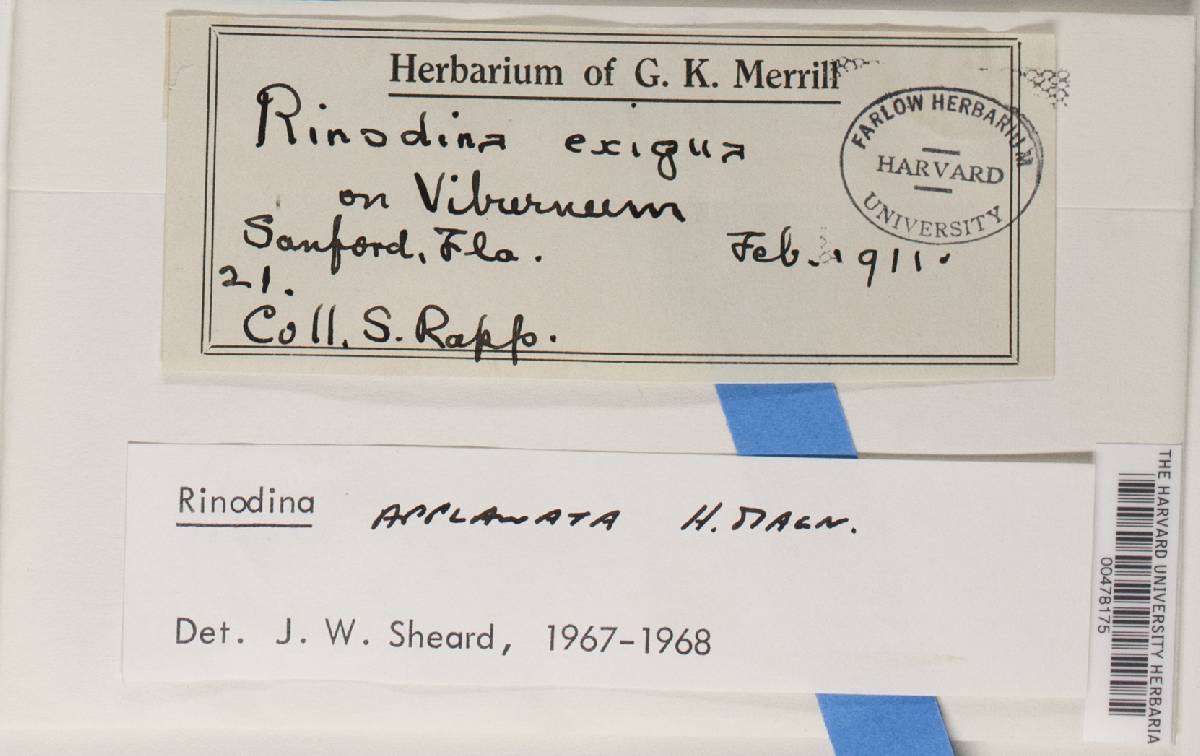 Herbarium of G. K. Merrill
Rinodina exigua
on Viburnum
Sanford, Fla. Feb. 1911.
21.
Coll. S. Rapp.
FARLOW HERBARIUM
HARVARD
UNIVERSITY
Rinodina APPLANATA H. MAGN.
Det. J. W. Sheard, 1967-1968
THE HARVARD UNIVERSITY HERBARIA
00478175